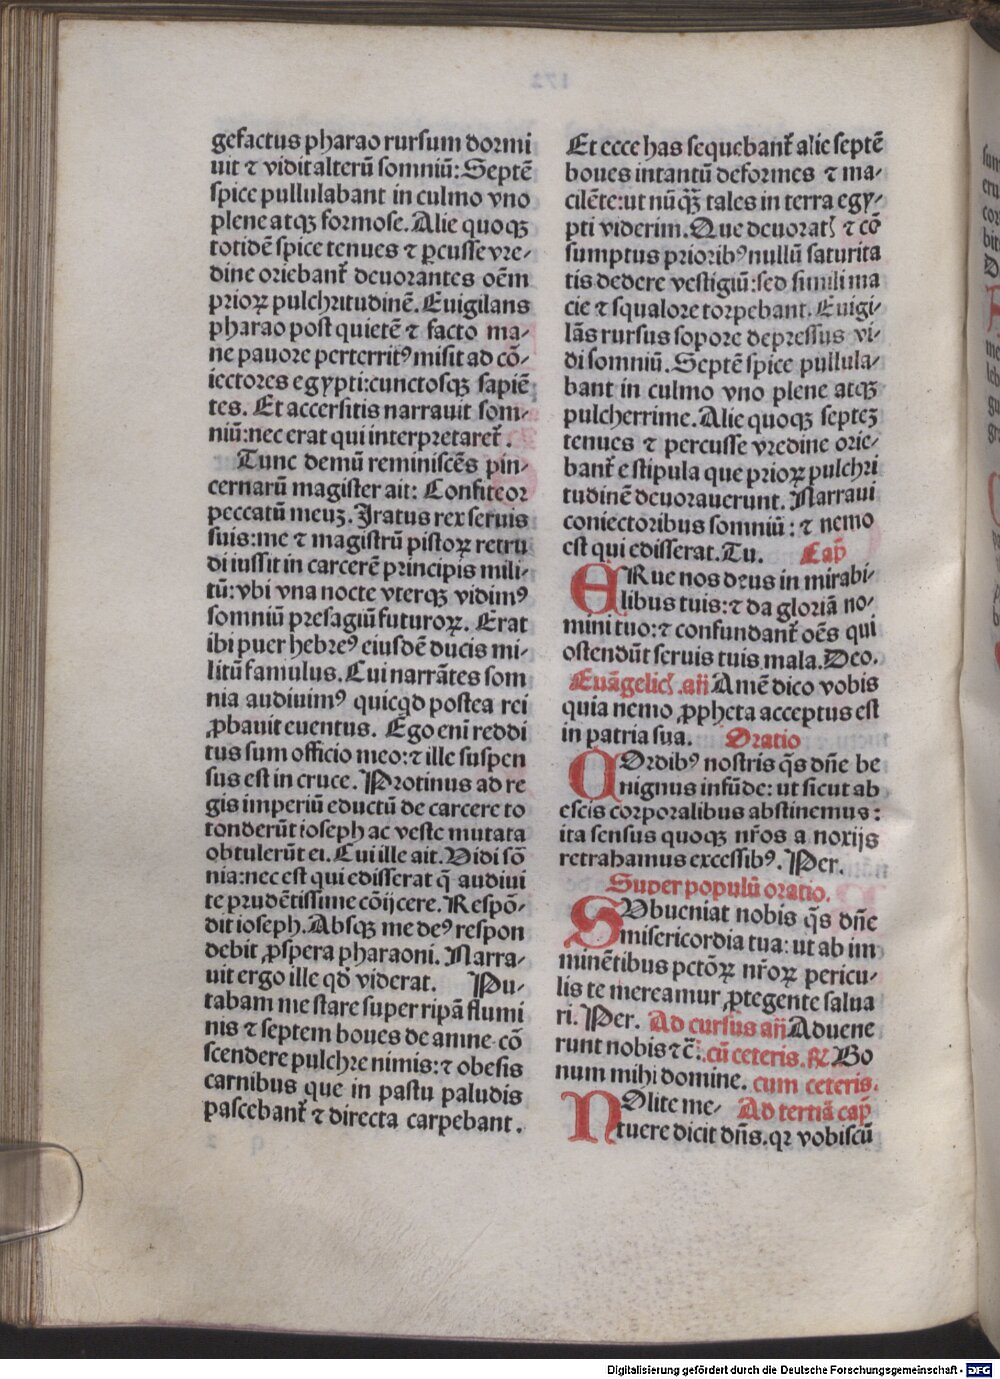 gefactus pharao rursum dormi
uit ⁊ vidit alterū somniū: Septē
spice pullulabant in culmo vno
plene atqꝫ formose. Alie quoqꝫ
totidē spice tenues ⁊ ꝑcusse vre-
dine oriebant̃ deuorantes oēm
prioꝝ pulchritudinē. Euigilans
pharao post quietē ⁊ facto ma-
ne pauore perterritꝰ misit ad cō-
iectores egypti: cunctosqꝫ sapiē
tes. Et accersitis narrauit som-
niū: nec erat qui interpretaret̃.
Tunc demū reminiscēs pin-
cernarū magister ait: Confiteor
peccatū meuꝫ. Iratus rex seruis
suis: me ⁊ magistrū pistoꝝ retru
di iussit in carcerē principis mili-
tū: vbi vna nocte vterqꝫ vidimꝰ
somniū presagiū futuroꝝ. Erat
ibi puer hebreꝰ eiusdē ducis mi-
litū famulus. Cui narrātes som
nia audiuimꝰ quicqd postea rei
ꝓbauit euentus. Ego eni reddi
tus sum officio meo: ⁊ ille suspen
sus est in cruce. Protinus ad re
gis imperiū eductū de carcere to
tonderūt ioseph ac veste mutata
obtulerūt ei. Cui ille ait. Vidi sō
nia: nec est qui edisserat q̄ audiui
te prudētissime cōijcere. Respō-
dit ioseph. Absqꝫ me deꝰ respon
debit ꝓspera pharaoni. Narra-
uit ergo ille qd̄ viderat. Pu-
tabam me stare super ripā flumi
nis ⁊ septem boues de amne cō
scendere pulchre nimis: ⁊ obesis
carnibus que in pastu paludis
pascebant̃ ⁊ directa carpebant.
Et ecce has sequebant̃ alie septē
boues intantū deformes ⁊ ma-
cilēte: ut nūqꝗ tales in terra egy-
pti viderim. Que deuoratꝭ ⁊ cō
sumptus prioribꝰ nullū saturita
tis dedere vestigiū: sed simili ma
cie ⁊ squalore torpebant. Euigi-
lās rursus sopore depressus vi-
di somniū. Septē spice pullula-
bant in culmo vno plene atqꝫ
pulcherrime. Alie quoqꝫ septeꝫ
tenues ⁊ percusse vredine orie-
bant̃ e stipula que prioꝝ pulchri
tudinē deuorauerunt. Narraui
coniectoribus somniū: ⁊ nemo
est qui edisserat. Tu. Cap̄
ERue nos deus in mirabi-
libus tuis: ⁊ da gloriā no-
mini tuo: ⁊ confundant̃ oēs qui
ostendūt seruis tuis mala. Deo.
Euāgelicꝭ. añ Amē dico vobis
quia nemo ꝓpheta acceptus est
in patria sua. Oratio
COrdibꝰ nostris q̄s dn̄e be
nignus infūde: ut sicut ab
escis corporalibus abstinemus:
ita sensus quoqꝫ nr̄os a noxijs
retrahamus excessibꝰ. Per.
Super populū oratio.
SVbueniat nobis q̄s dn̄e
misericordia tua: ut ab im
minētibus pctōꝝ nr̄oꝝ pericu-
lis te mereamur ꝓtegente salua
ri. Per. Ad cursus añ Aduene
runt nobis ⁊c̄. cū ceteris. ℟ Bo
num mihi domine. cum ceteris.
NOlite me- Ad tertiā cap̄
tuere dicit dn̄s. qꝛ vobiscū
Digitalisierung gefördert durch die Deutsche Forschungsgemeinschaft - DFG